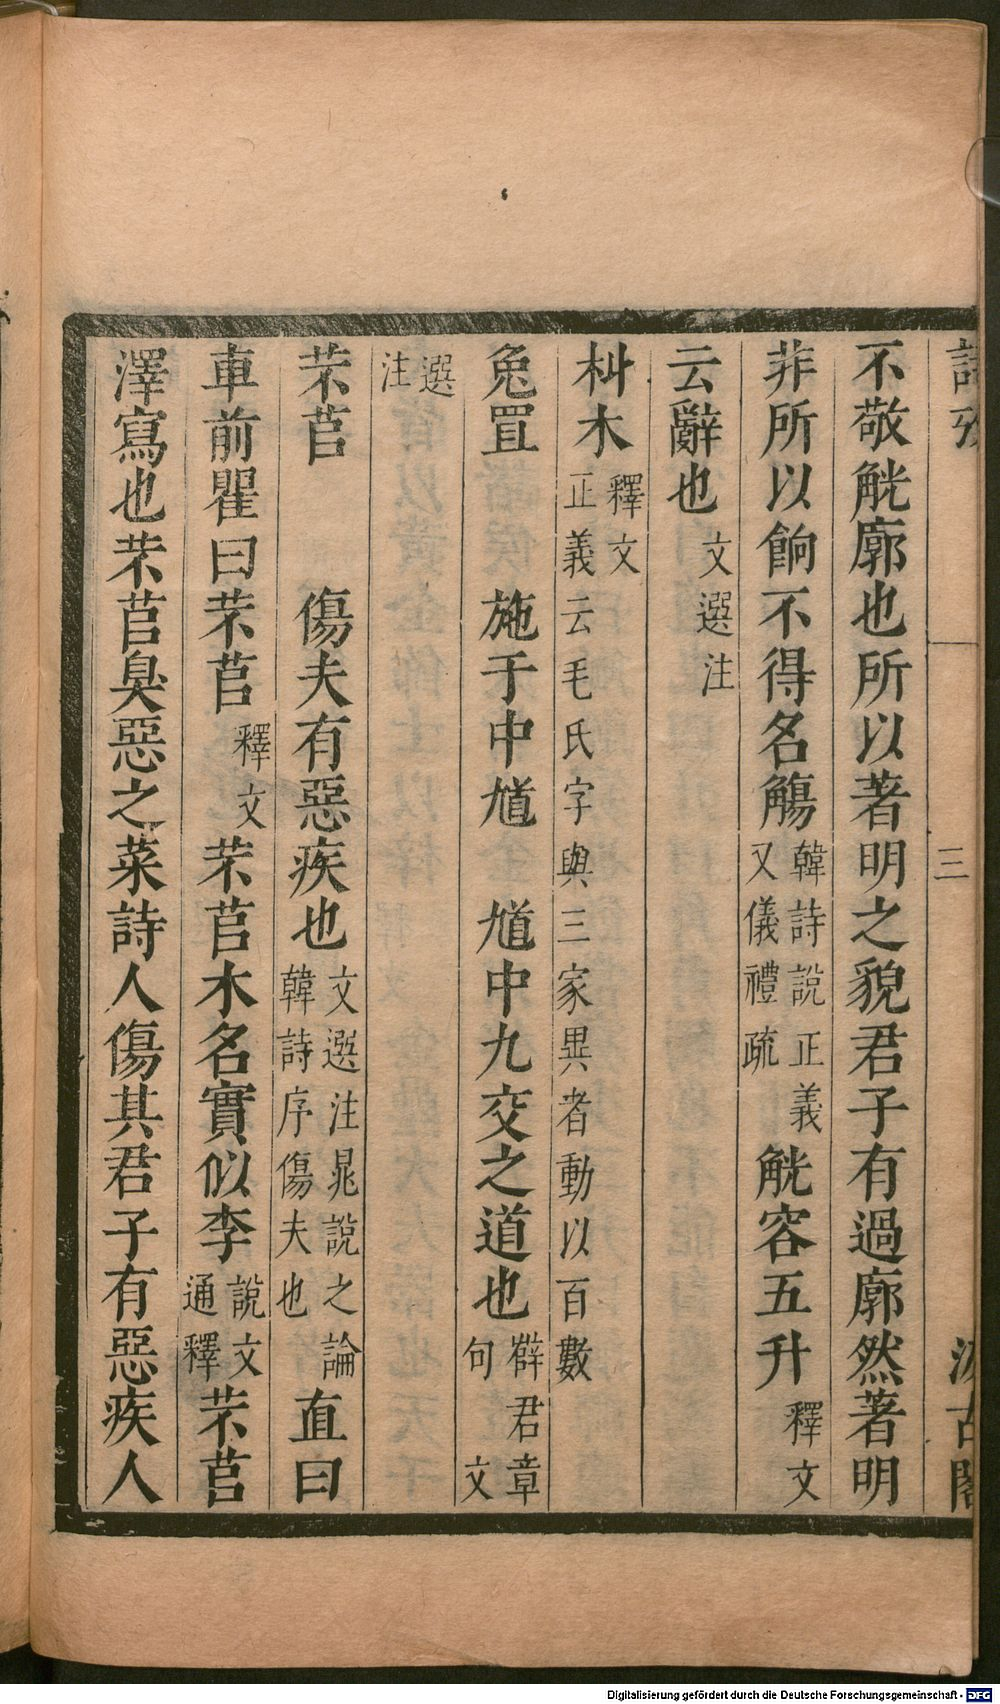 詩攷
三
汲古閣
不敬觥廓也所以著明之貌君子有過廓然著明
非所以餉不得名觴韓詩說正義又儀禮疏觥容五升釋文
云辭也文選注
朻木釋文正義云毛氏字與三家異者動以百數
兔罝施于中馗馗中九交之道也薛君章句文
選注
芣苢傷夫有惡疾也文選注晁說之論韓詩序傷夫也直曰
車前瞿曰芣苢釋文芣苢木名實似李說文通釋芣苢
澤寫也芣苢臭惡之菜詩人傷其君子有惡疾人
Digitalisierung gefördert durch die Deutsche Forschungsgemeinschaft - DFG